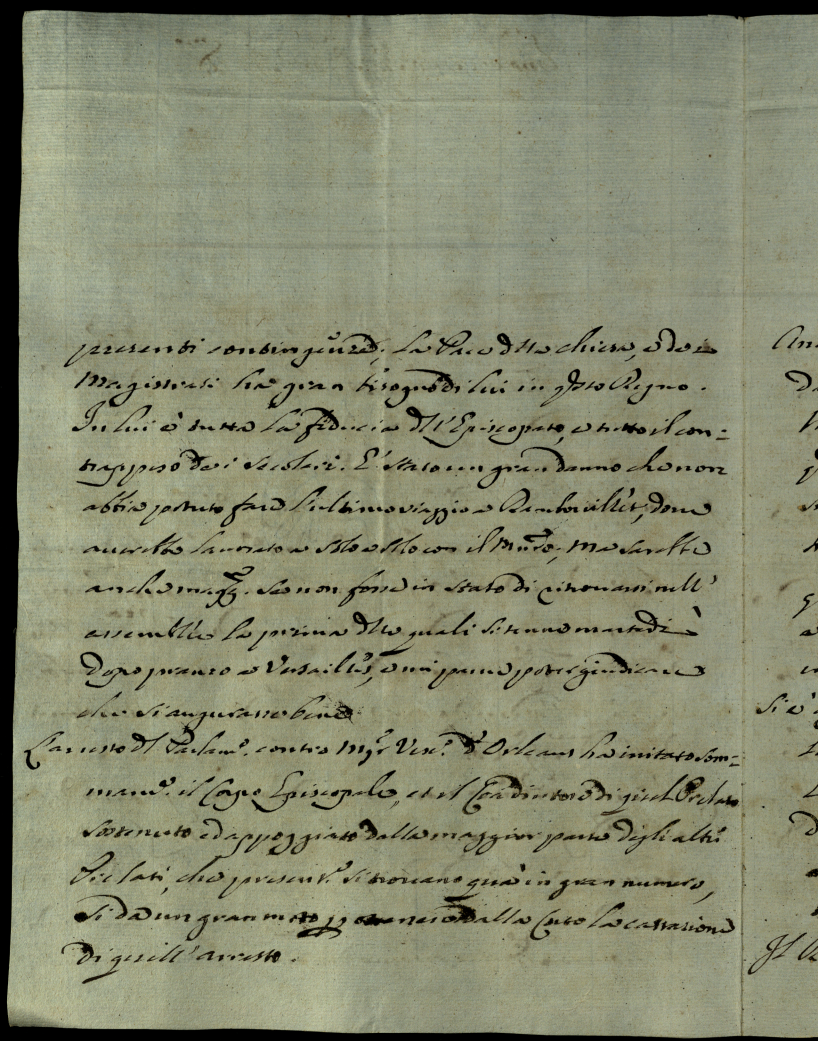 presenti contingenze; la Pace della chiesa, e de i
Magistrati ha gran bisogno di lui in q.sto Regno.
In lui è tutta la fiducia dell'Episcopato, e tutto il con=
trappeso de i Secolari. E' stato un gran danno che non
abbia potuto fare l'ultimo viaggio a Rambouillet, dove
averebbe lavorato a solo a solo con il ; ma sarebbe
anche magg.re se non fosse in stato di ritrovarsi nell'
assemblee la prima delle quali si tenne martedì
dopo pranzo a Versailles, e mi parve poter giudicare
che si augurasse bene
L'arresto del Parlam.to contro Mg.r Vesc.o d'Orleans ha irritato som=
mam.e il Corpo Episcopale, et il Coadiutore di quel Prelato
sostenuto ed appoggiato dalla maggior parte degli altri
Prelati, che present.e si trovano quà in gran numero,
si dà un gran moto p ottenere dalla Corte la cassazione
di quell'arresto.
An
Si è
Il